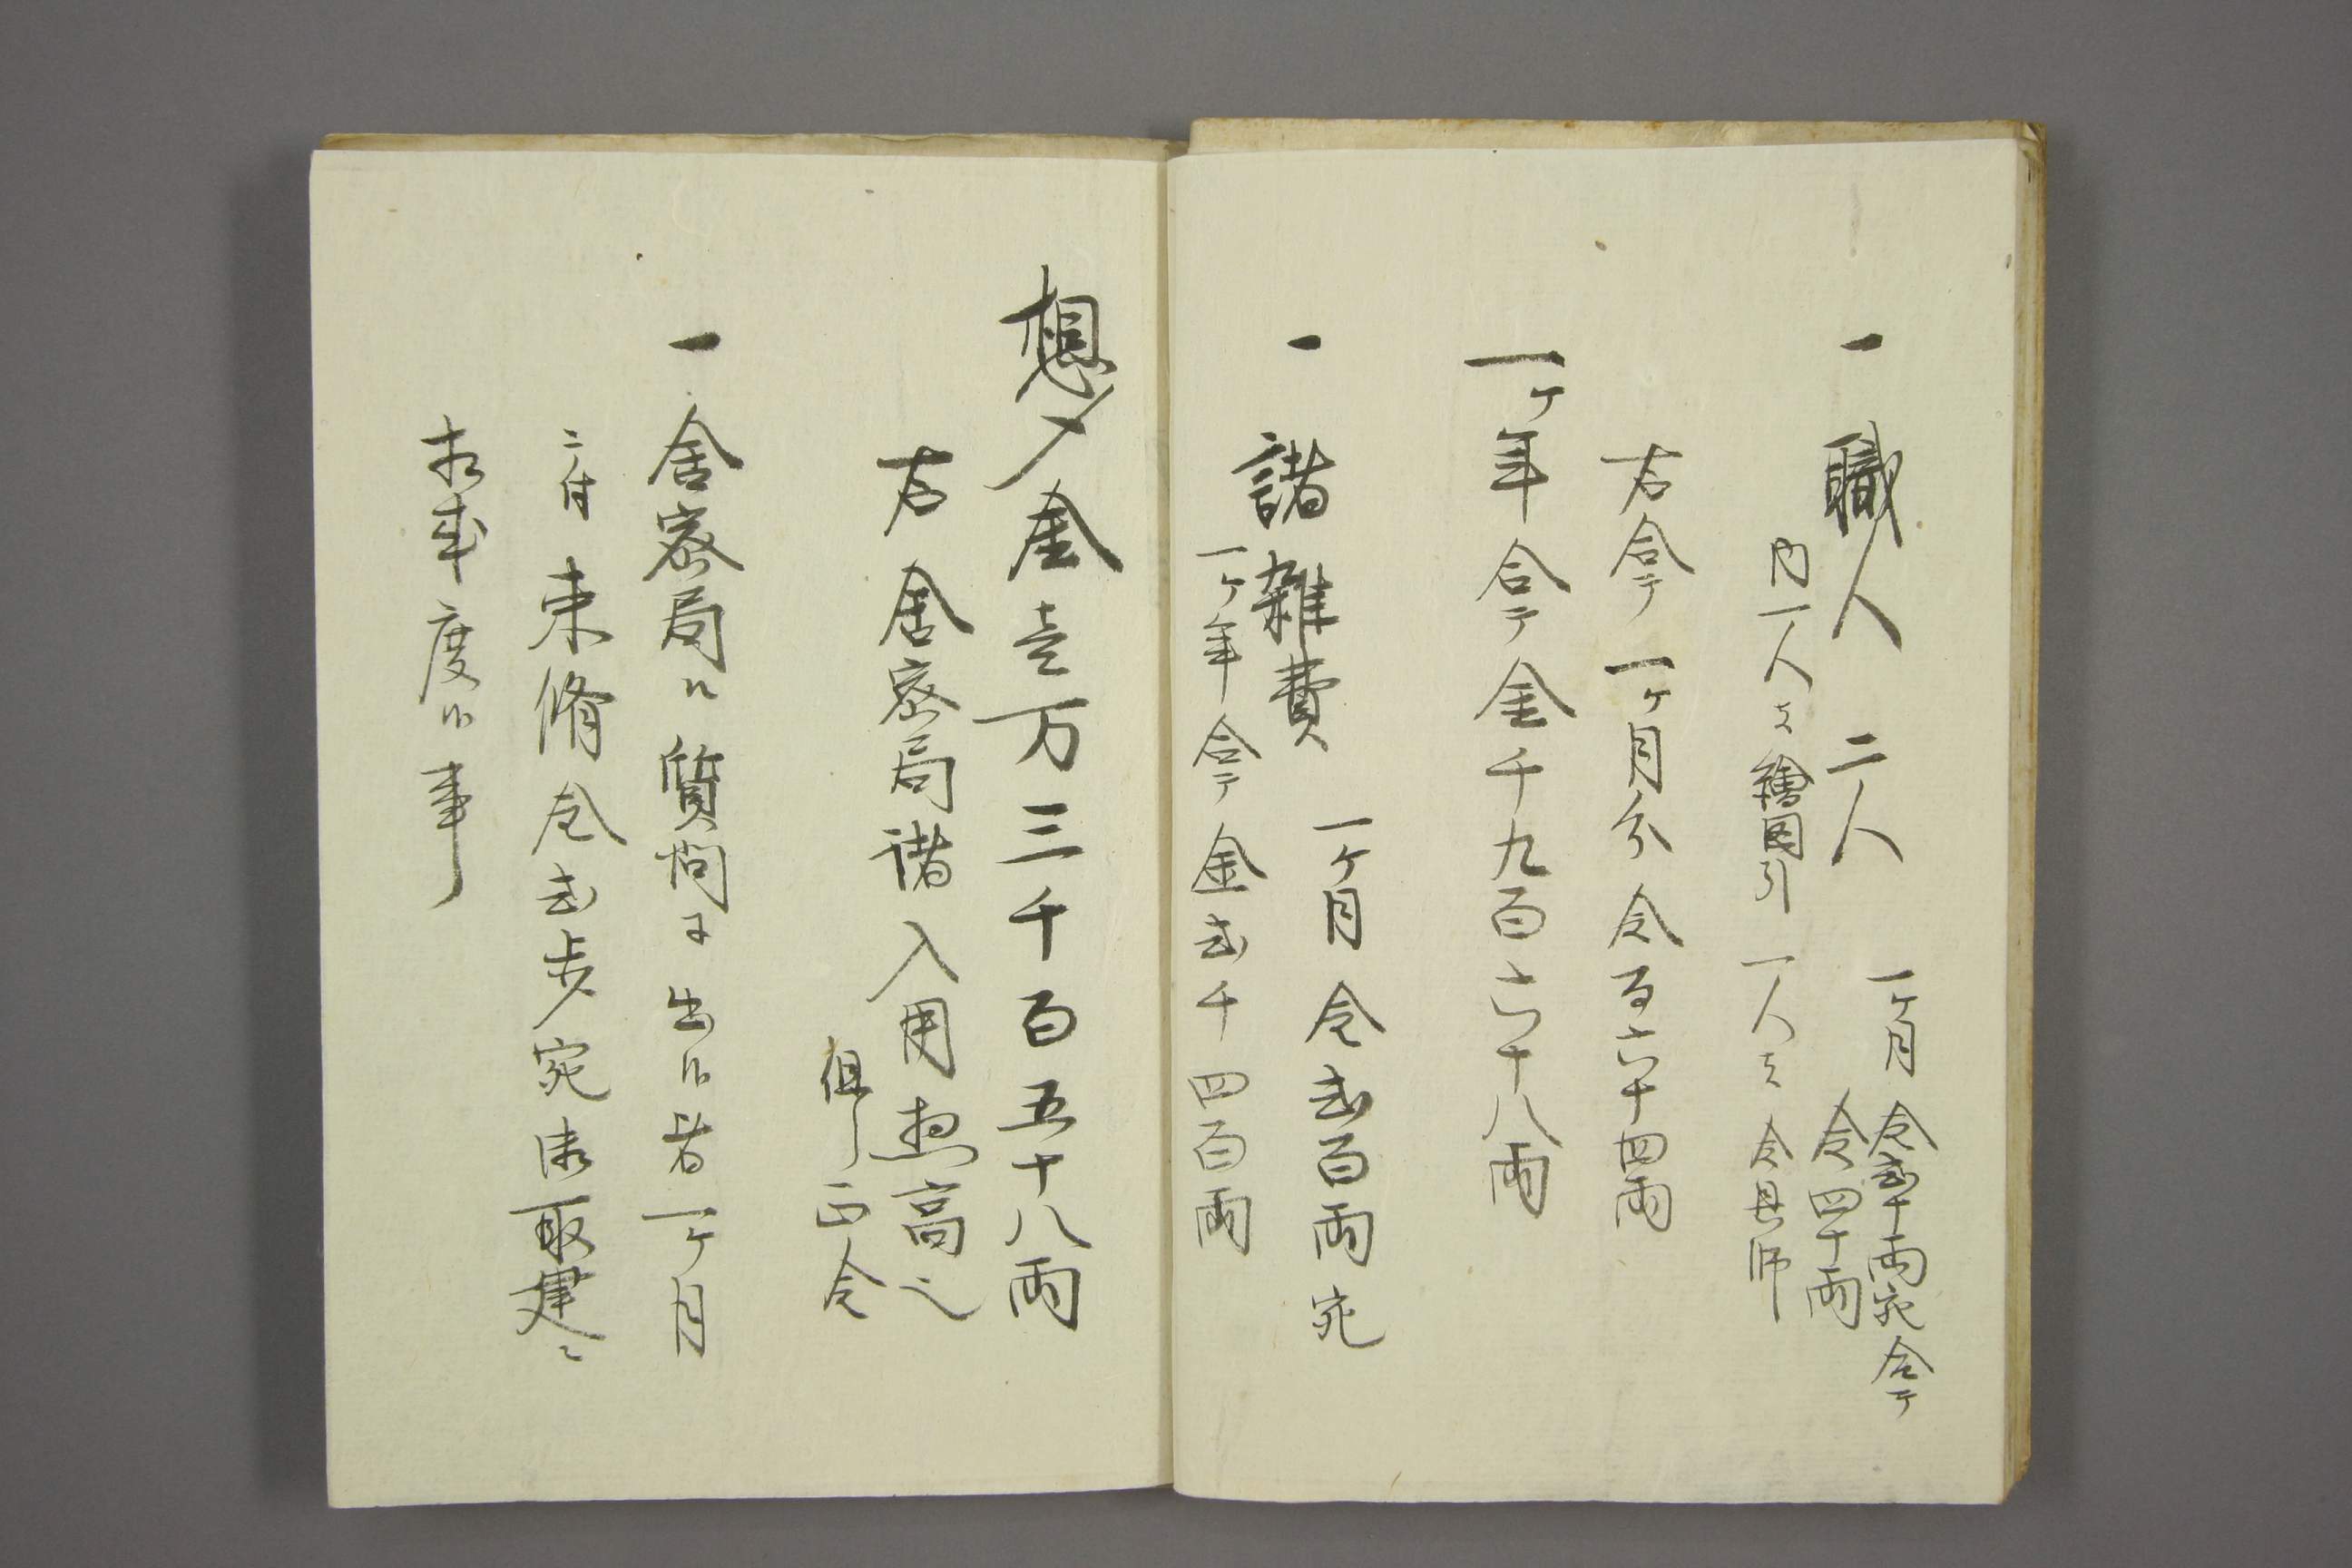 一 職人 二人
一ヶ月 金弐十両宛合テ
金四十両
内一人ハ繪図引 一人ハ金具師
右合テ 一ヶ月分 金百六十四両
一ヶ年合テ金千九百六十八両
一 諸雑費
一ヶ月 金弐百両宛
一ヶ年合テ金弐千四百両
惣〆金壱万三千百五十八両
右舎密局諸入用惣高也
但シ正金
一 舎密局江質問ニ出候者一ヶ月
ニ付束脩金弐歩宛御取建ニ
相成度候事